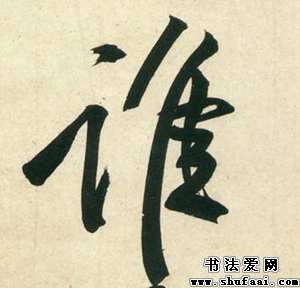 谁
书法爱网
www.shufaai.com